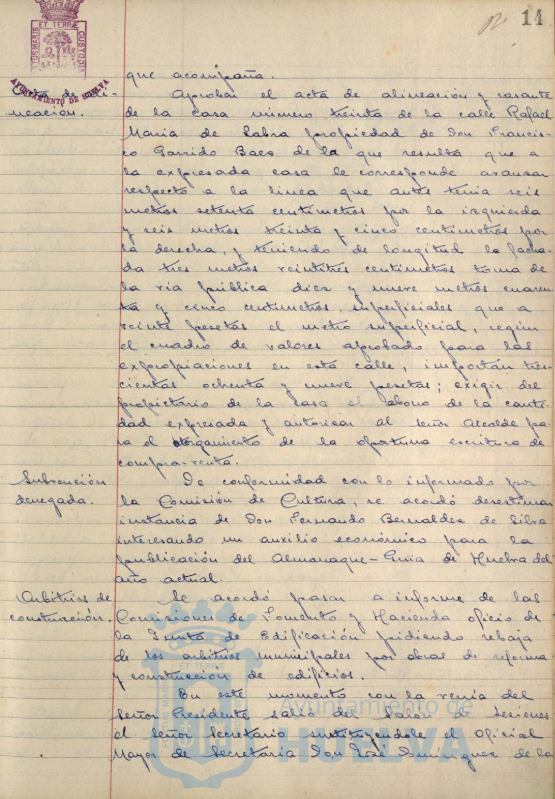 14
AYUNTAMIENTO DE HUELVA
que acompaña.
Acta de ali-
neación.
Aprobar el acta de alineación y rasante
de la casa número treinta de la calle Rafael
María de Labra propiedad de Don Francis-
co Garrido Baes de la que resulta que a
la expresada casa le corresponde avanzar
respecto a la línea que antes tenía seis
metros setenta centímetros por la izquierda
y seis metros treinta y cinco centímetros por
la derecha, y teniendo de longitud la facha-
da tres metros veintitres centímetros toma de
la vía pública diez y nueve metros cuaren-
ta y cinco centímetros superficiales que a
veinte pesetas el metro superficial, según
el cuadro de valores aprobado para las
expropiaciones en esta calle, importan tres-
cientas ochenta y nueve pesetas; exigir del
propietario de la casa el abono de la canti-
dad expresada y autorizar al señor Alcalde pa-
ra el otorgamiento de la oportuna escritura de
compra-venta.
Subvención
denegada.
De conformidad con lo informado por
la Comisión de Cultura, se acordó desestimar
instancia de Don Fernando Bernaldez de Silva
interesando un auxilio económico para la
publicación del Almanaque-Guía de Huelva del
año actual.
Arbitrios de
construcción.
Se acordó pasar a informe de las
Comisiones de Fomento y Hacienda oficio de
la Junta de Edificación pidiendo rebaja
de los arbitrios municipales por obras de reforma
y construcción de edificios.
En este momento con la venia del
Señor Presidente salió del Salón de Sesiones
el señor Secretario sustituyendole el Oficial
Mayor de Secretaría Don José Domínguez de la
Ayuntamiento de
HUELVA